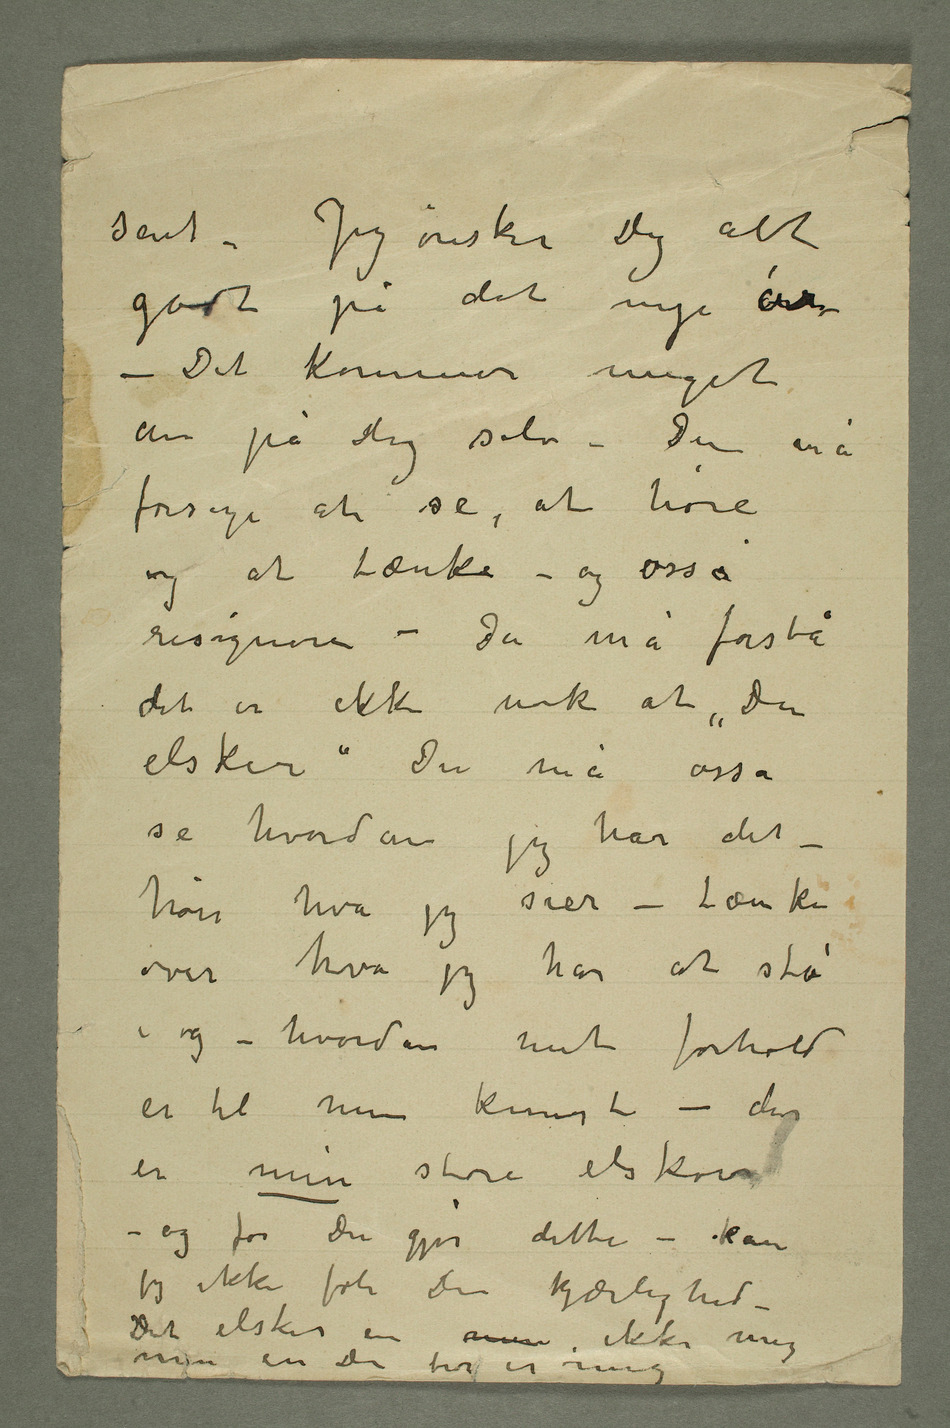 sent – Jeg ønsker Dig alt
godt på det nye år
– Det kommer meget
an på dig selv – Du må
forsøge at se, at høre
og at tænke – og osså
resignere – Du må forstå
det er ikke nok at „Du
elsker“ Du må ossa
se hvordan jeg har det –
hør hva jeg sier – tænke
over hva jeg har at stå
i og – hvordan mit forhold
er til min kunst – der
er min store elskov
– og før Du gjør dette – kan
jeg ikke føle Din kjærlighed –
Du elsker en ikke mig
men en Du tror er mig